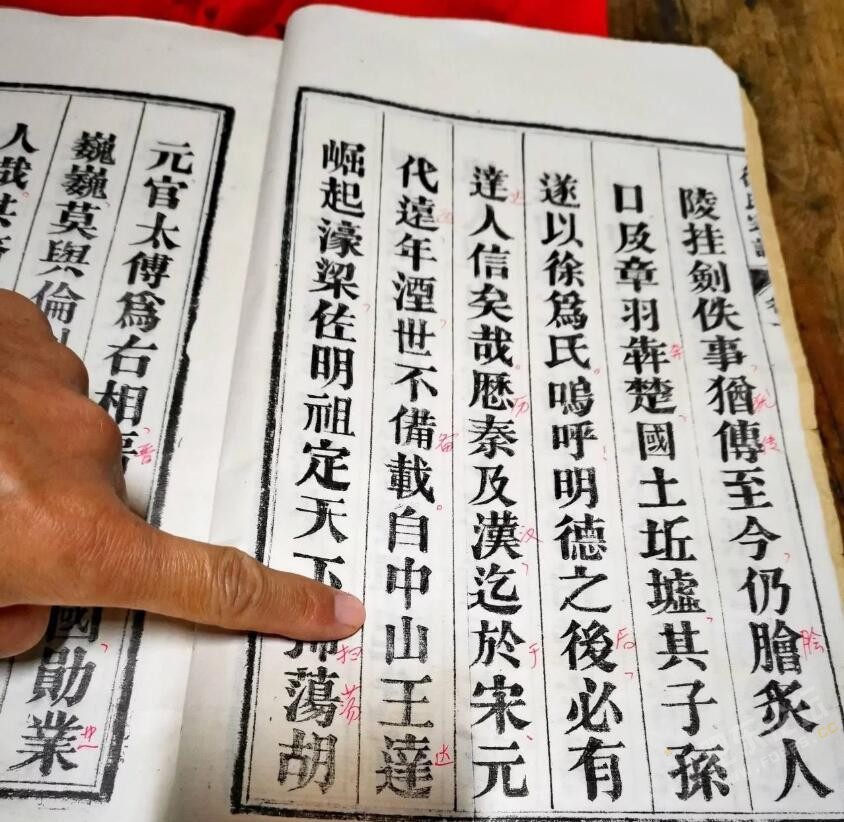 陵挂劍佚事、猶傳至今、仍膾炙人
口及章羽犇楚、國土坵墟、其子孫
遂以徐爲氏。嗚呼！明德之後、必有
達人信矣哉。厯秦及漢、迄於宋、元
代遠年湮、世不備載。自中山王達
崛起濠梁、佐明祖定天下掃蕩胡
元官太傅爲右相、
巍巍莫與倫
國、勛業
人哉。